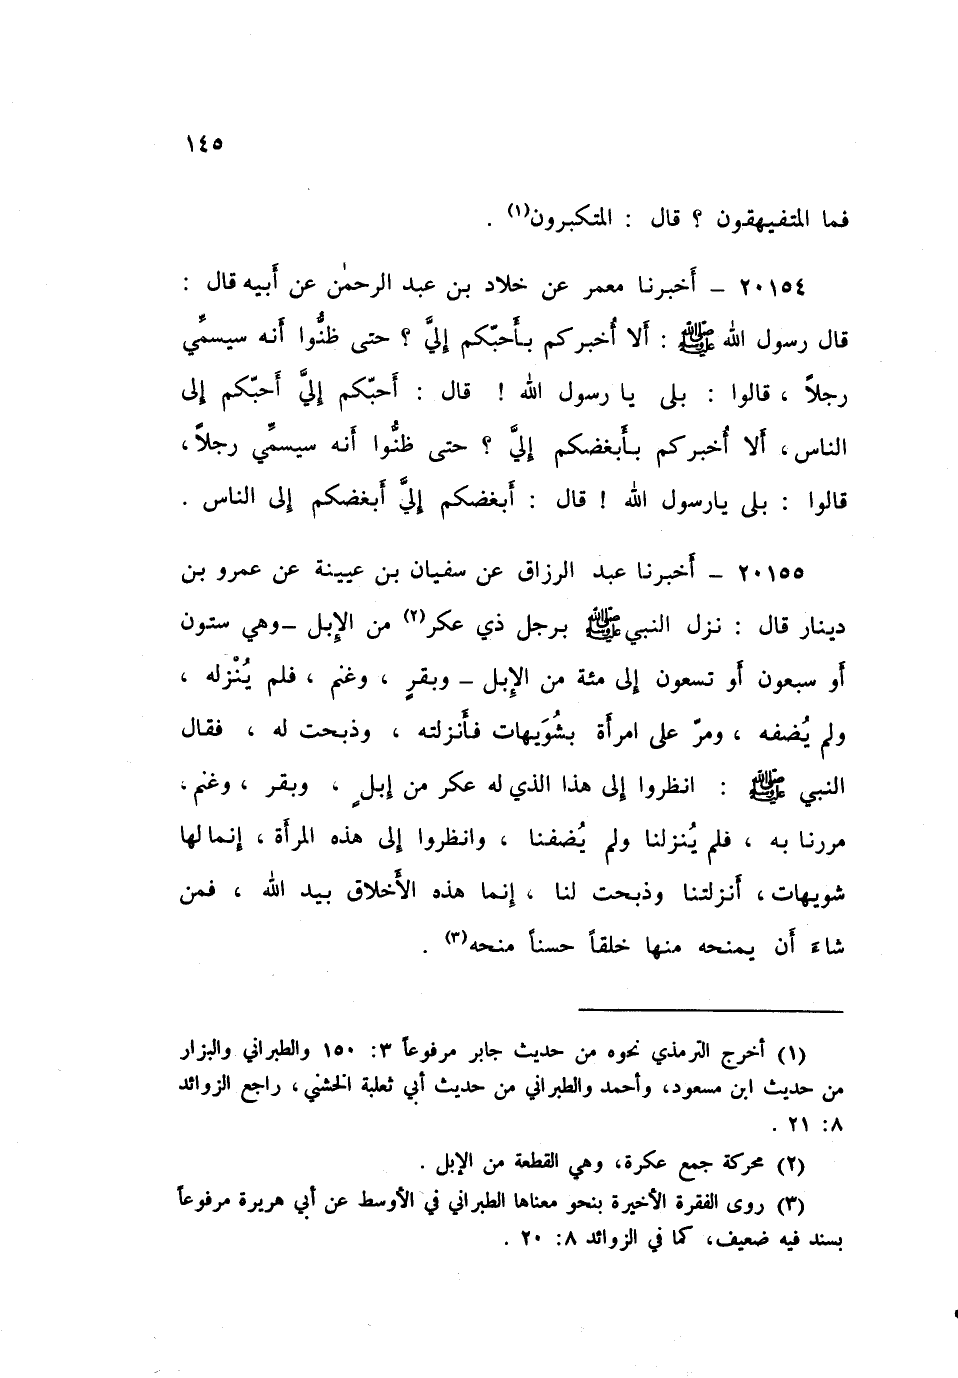 ١٤٥
فما المتفيهقون ؟ قال : المتكبرون(١) .
٢٠١٥٤ ـ أخبرنا معمر عن خلاد بن عبد الرحمٰن عن أبيه قال :
قال رسول الله ﷺ : ألا أُخبركم بأَحبّكم إليَّ ؟ حتى ظنُّوا أنه سيسمِّي
رجلاً ، قالوا : بلى يا رسول الله ! قال : أحبّكم إليَّ أحبّكم إلى
الناس ، ألا أُخبركم بأَبغضكم إليَّ ؟ حتى ظنُّوا أنه سيسمِّي رجلاً ،
قالوا : بلى يارسول الله ! قال : أبغضكم إليَّ أبغضكم إلى الناس .
٢٠١٥٥ ـ أخبرنا عبد الرزاق عن سفيان بن عيينة عن عمرو بن
دينار قال : نزل النبي ﷺ برجل ذي عكر(٢) من الإبل ـ وهي ستون
أو سبعون أو تسعون إلى مئة من الإبل ـ وبقرٍ ، وغنم ، فلم يُنْزله ،
ولم يُضفه ، ومرّ على امرأة بشُوَيهات فأنزلته ، وذبحت له ، فقال
النبي ﷺ : انظروا إلى هذا الذي له عكر من إبلٍ ، وبقر ، وغنم ،
مررنا به ، فلم يُنزلنا ولم يُضفنا ، وانظروا إلى هذه المرأة ، إنما لها
شويهات ، أنزلتنا وذبحت لنا ، إنما هذه الأخلاق بيد الله ، فمن
شاءَ أن يمنحه منها خلقاً حسناً منحه(٣) .
(١) أخرج الترمذي نحوه من حديث جابر مرفوعاً ٣: ١٥٠ والطبراني والبزار
من حديث ابن مسعود، وأحمد والطبراني من حديث أبي ثعلبة الخشني، راجع الزوائد
٨: ٢١ .
(٢) محركة جمع عكرة، وهي القطعة من الإبل .
(٣) روى الفقرة الأخيرة بنحو معناها الطبراني في الأوسط عن أبي هريرة مرفوعاً
بسند فيه ضعيف، كما في الزوائد ٨: ٢٠ .